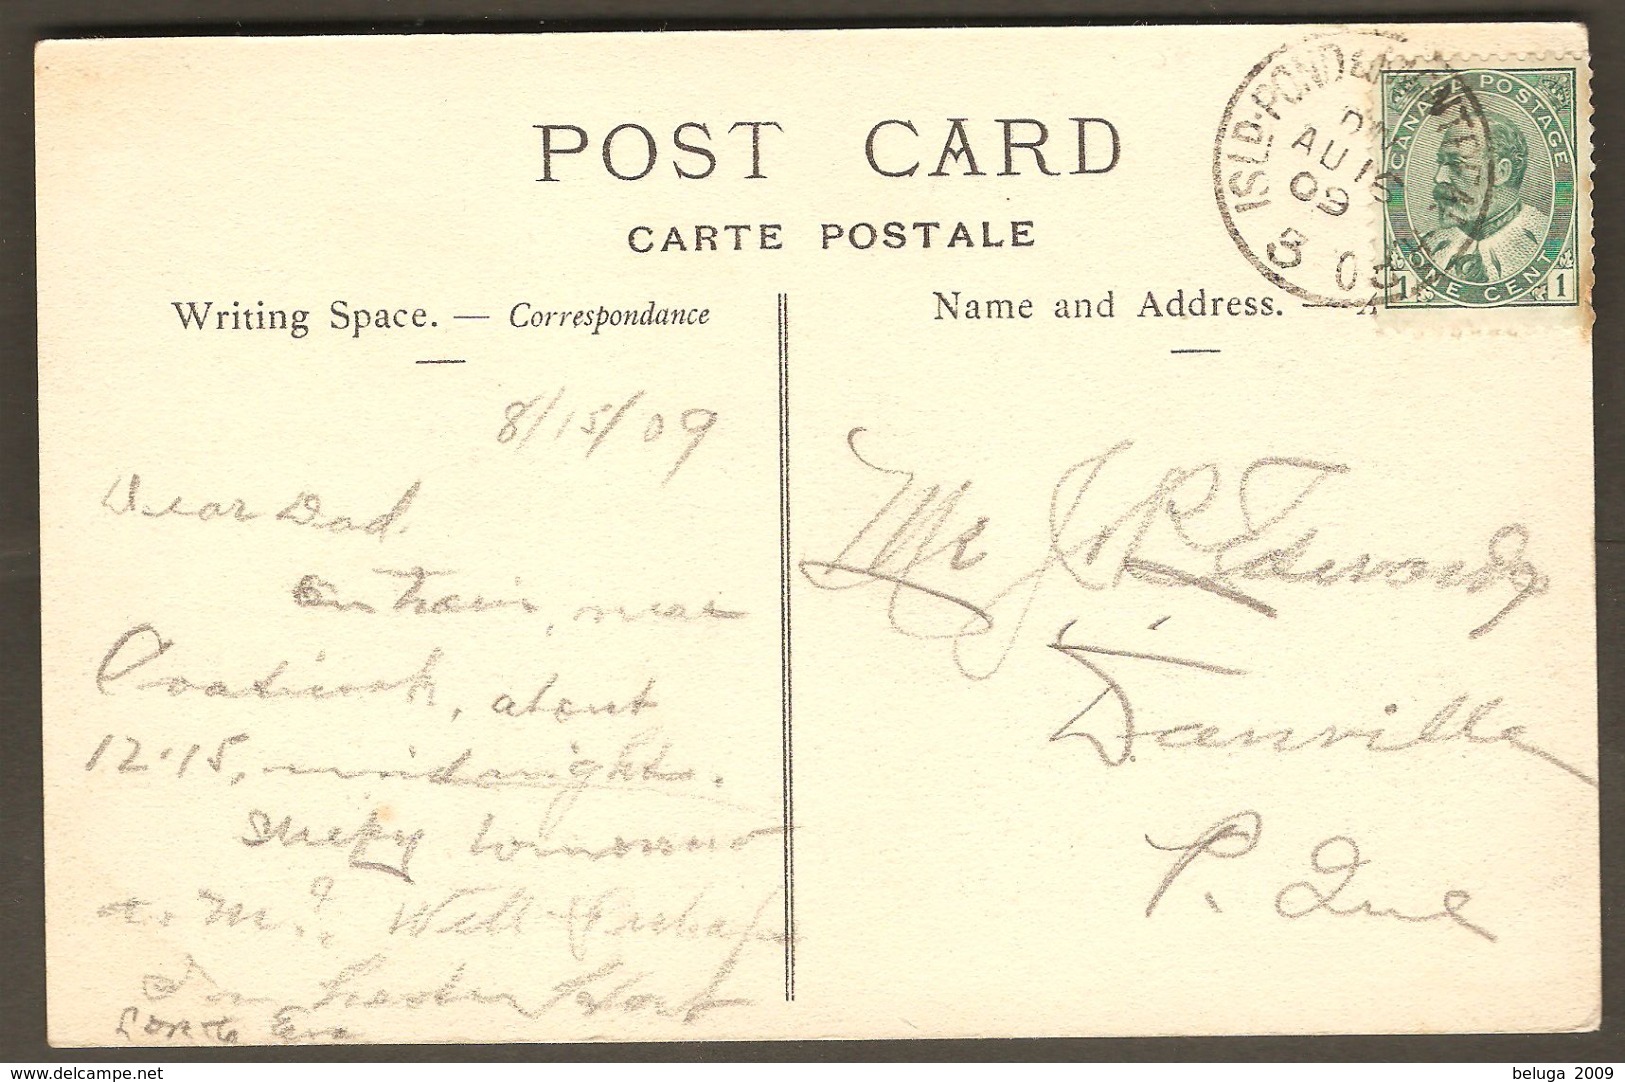 POST CARD
CARTE POSTALE
Writing Space. — Correspondance
Name and Address. —
ISLD. POND &
AU 15
09
CANADA POSTAGE
1 ONE CENT 1
8/15/09
Dear Dad.
On train, near
Coaticook, about
12.15, midnight.
Sleepy tomorrow
a. m.? Well Perhaps
I'm
Love to Eva
Mr J R Edwards
Danville
P. Que
delcampe.net
beluga 2009